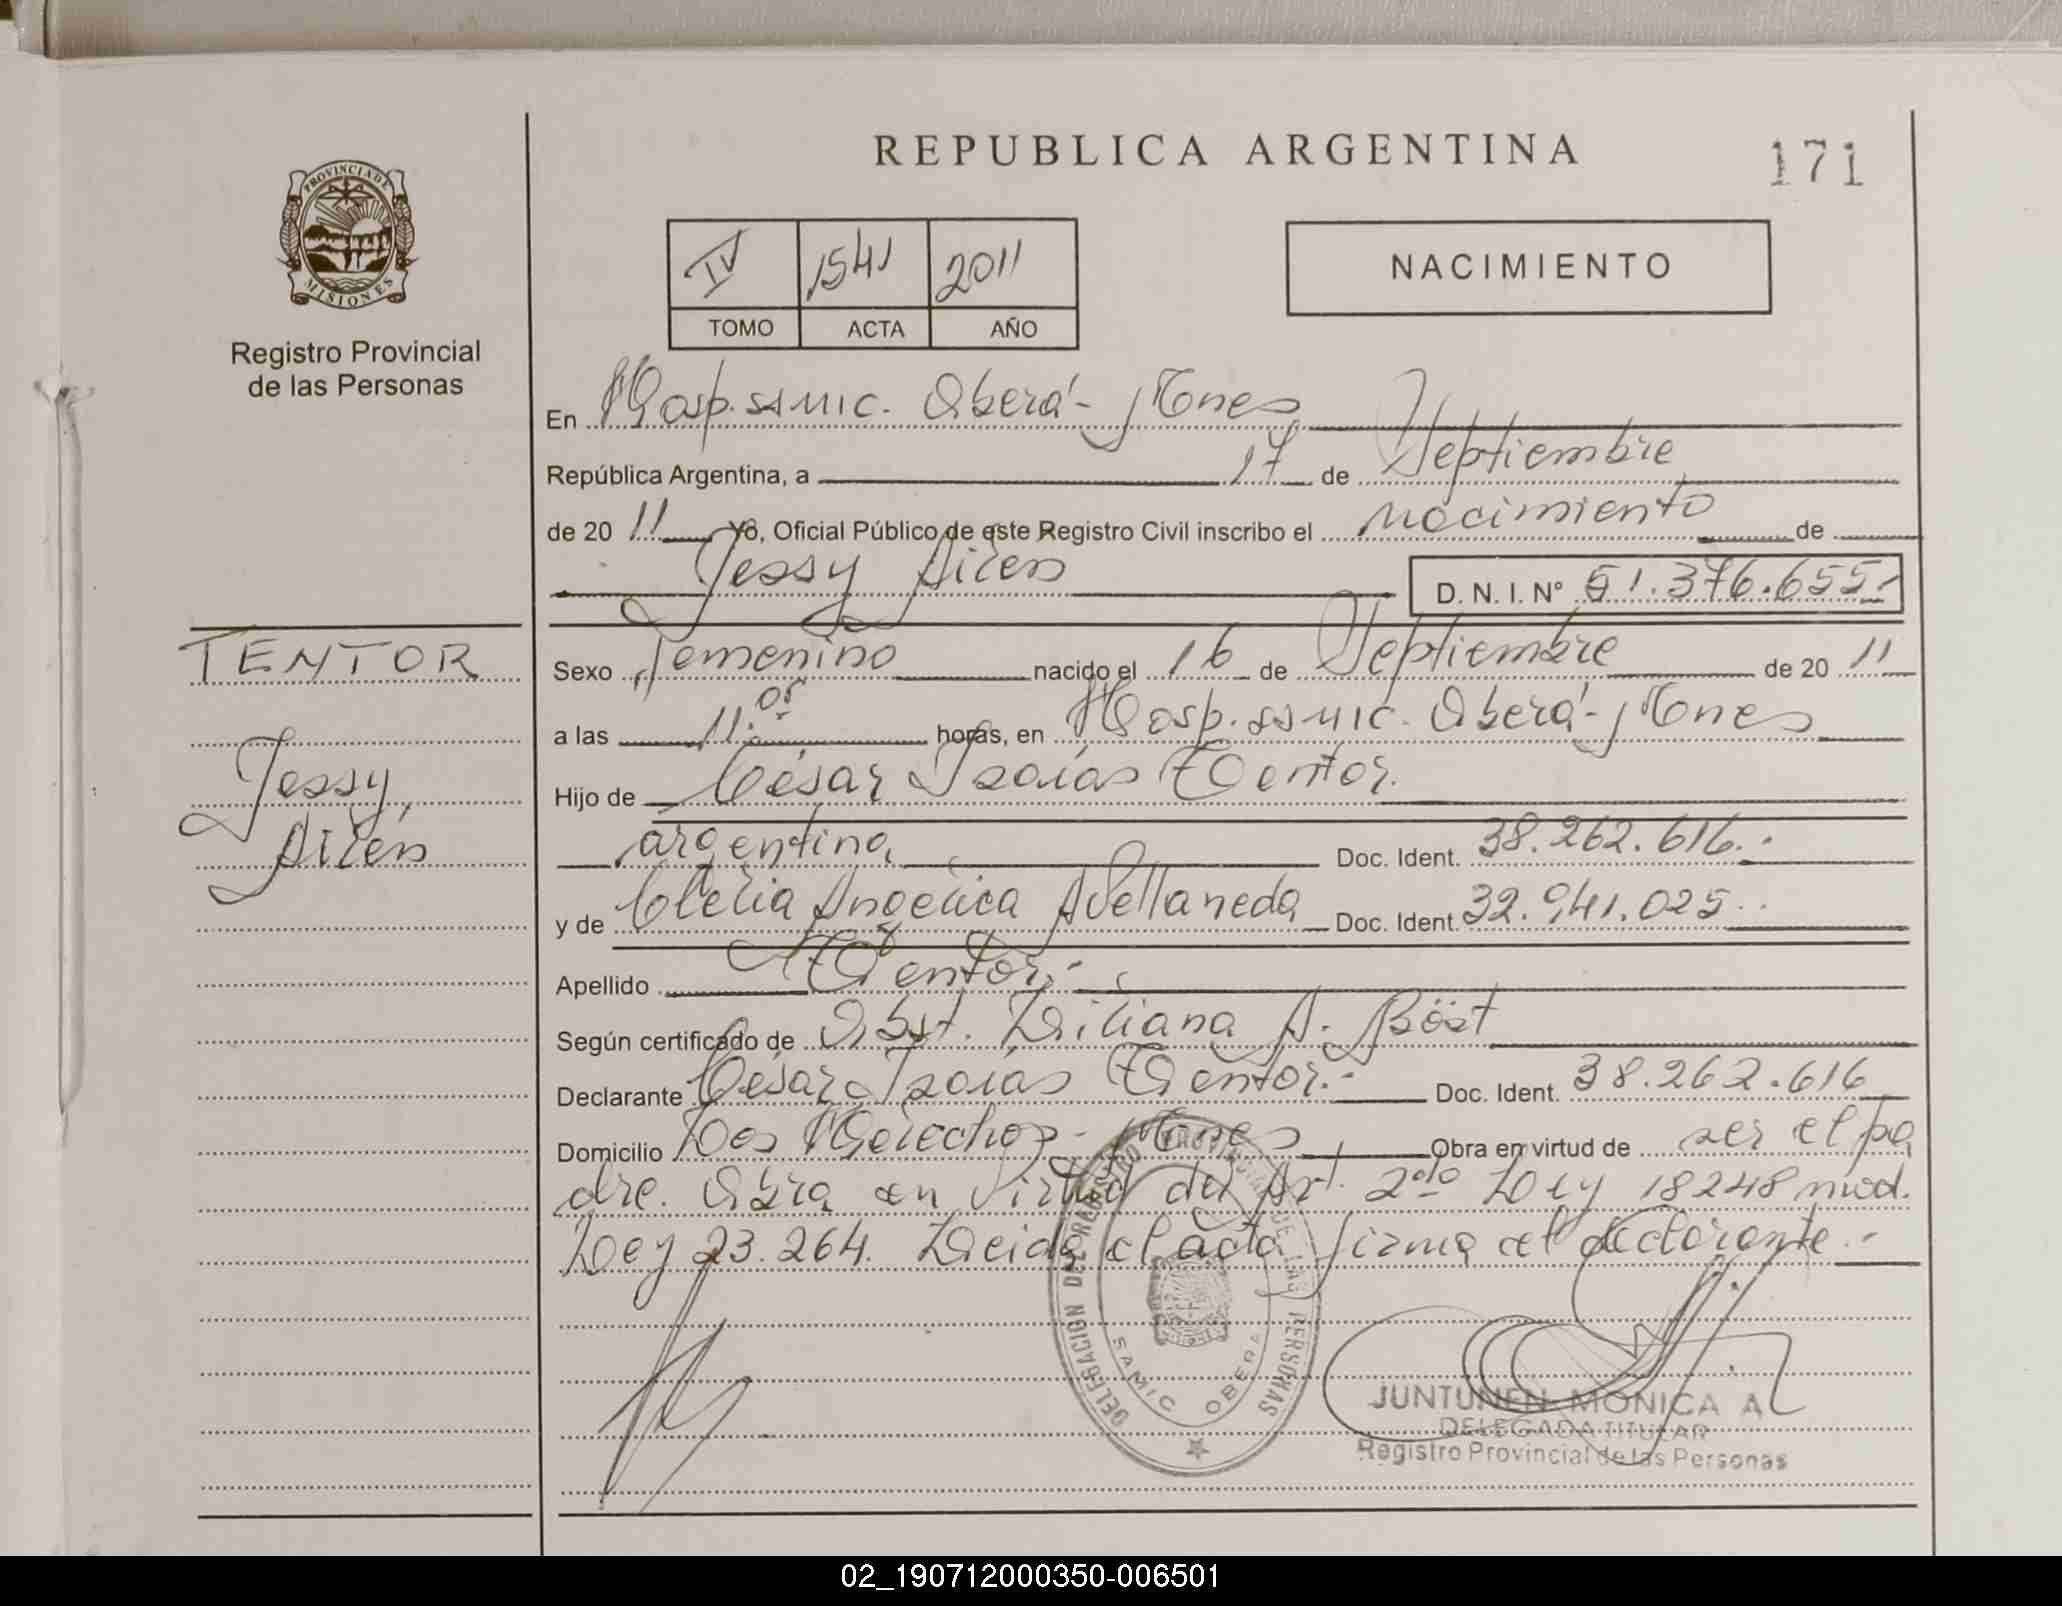 REPUBLICA ARGENTINA
171
PROVINCIA DE
MISIONES
Registro Provincial
de las Personas
IV 1541 2011
TOMO ACTA AÑO
NACIMIENTO
En Hosp. SAMIC. Oberá - Mnes
República Argentina, a 17 de Septiembre
de 20 11 Yo, Oficial Público de este Registro Civil inscribo el Nacimiento de
Jessy Ailén D. N. I. Nº 51.376.655.-
TENTOR
Jessy,
Ailén
Sexo femenino nacido el 16 de Septiembre de 20 11
a las 11:05 horas, en Hosp. SAMIC. Oberá - Mnes
Hijo de César Isaías Tentor.
argentina Doc. Ident. 38.262.616.-
y de Clelia Angélica Avellaneda Doc. Ident. 32.941.025.-
Apellido Tentor.-
Según certificado de Obst. Liliana A. Böst
Declarante César Isaías Tentor.- Doc. Ident. 38.262.616
Domicilio Dos Hermanas - Mnes Obra en virtud de ser el pa
dre. Obra en virtud del Art. 2do Ley 18248 mod.
Ley 23.264. Leida el acta firma el declarante.-
DELEGACION DEL REGISTRO PROVINCIAL DE LAS PERSONAS
SAMIC OBERA
JUNTUNEN MONICA A
DELEGADA TITULAR
Registro Provincial de las Personas
02_190712000350-006501